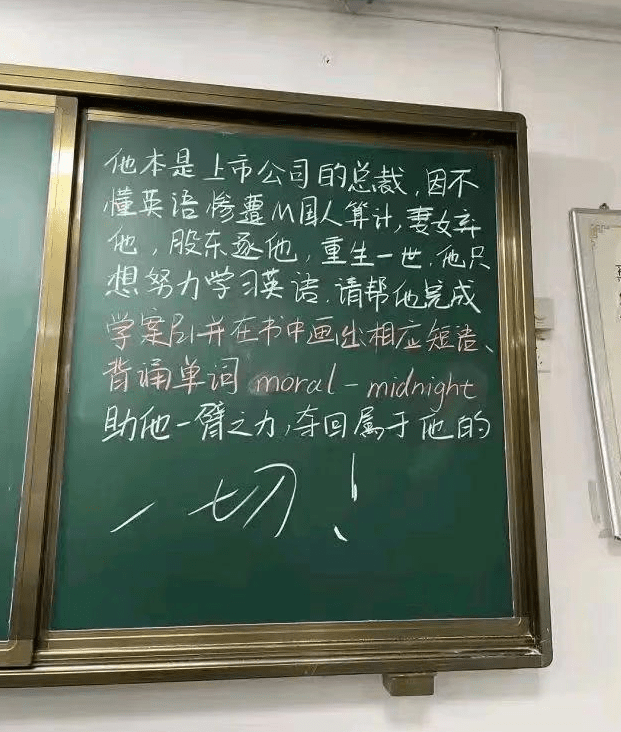 他本是上市公司的总裁，因不
懂英语惨遭M国人算计，妻女弃
他，股东逐他，重生一世，他只
想努力学习英语，请帮他完成
学案 并在书中画出相应短语、
背诵单词 moral-midnight
助他一臂之力，夺回属于他的
一切！